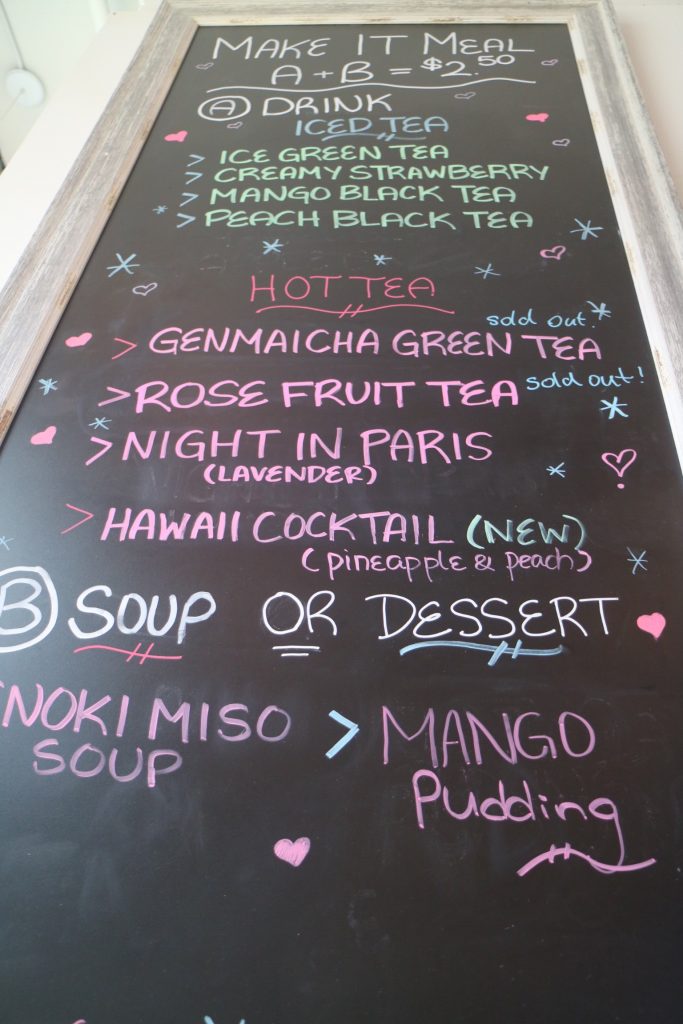 MAKE IT MEAL
A + B = $2.50
(A) DRINK
ICED TEA
> ICE GREEN TEA
> CREAMY STRAWBERRY
> MANGO BLACK TEA
> PEACH BLACK TEA
HOT TEA
> GENMAICHA GREEN TEA sold out!
> ROSE FRUIT TEA sold out!
> NIGHT IN PARIS
(LAVENDER)
> HAWAII COCKTAIL (NEW)
(pineapple & peach)
(B) SOUP OR DESSERT
NOKI MISO
SOUP
> MANGO
Pudding